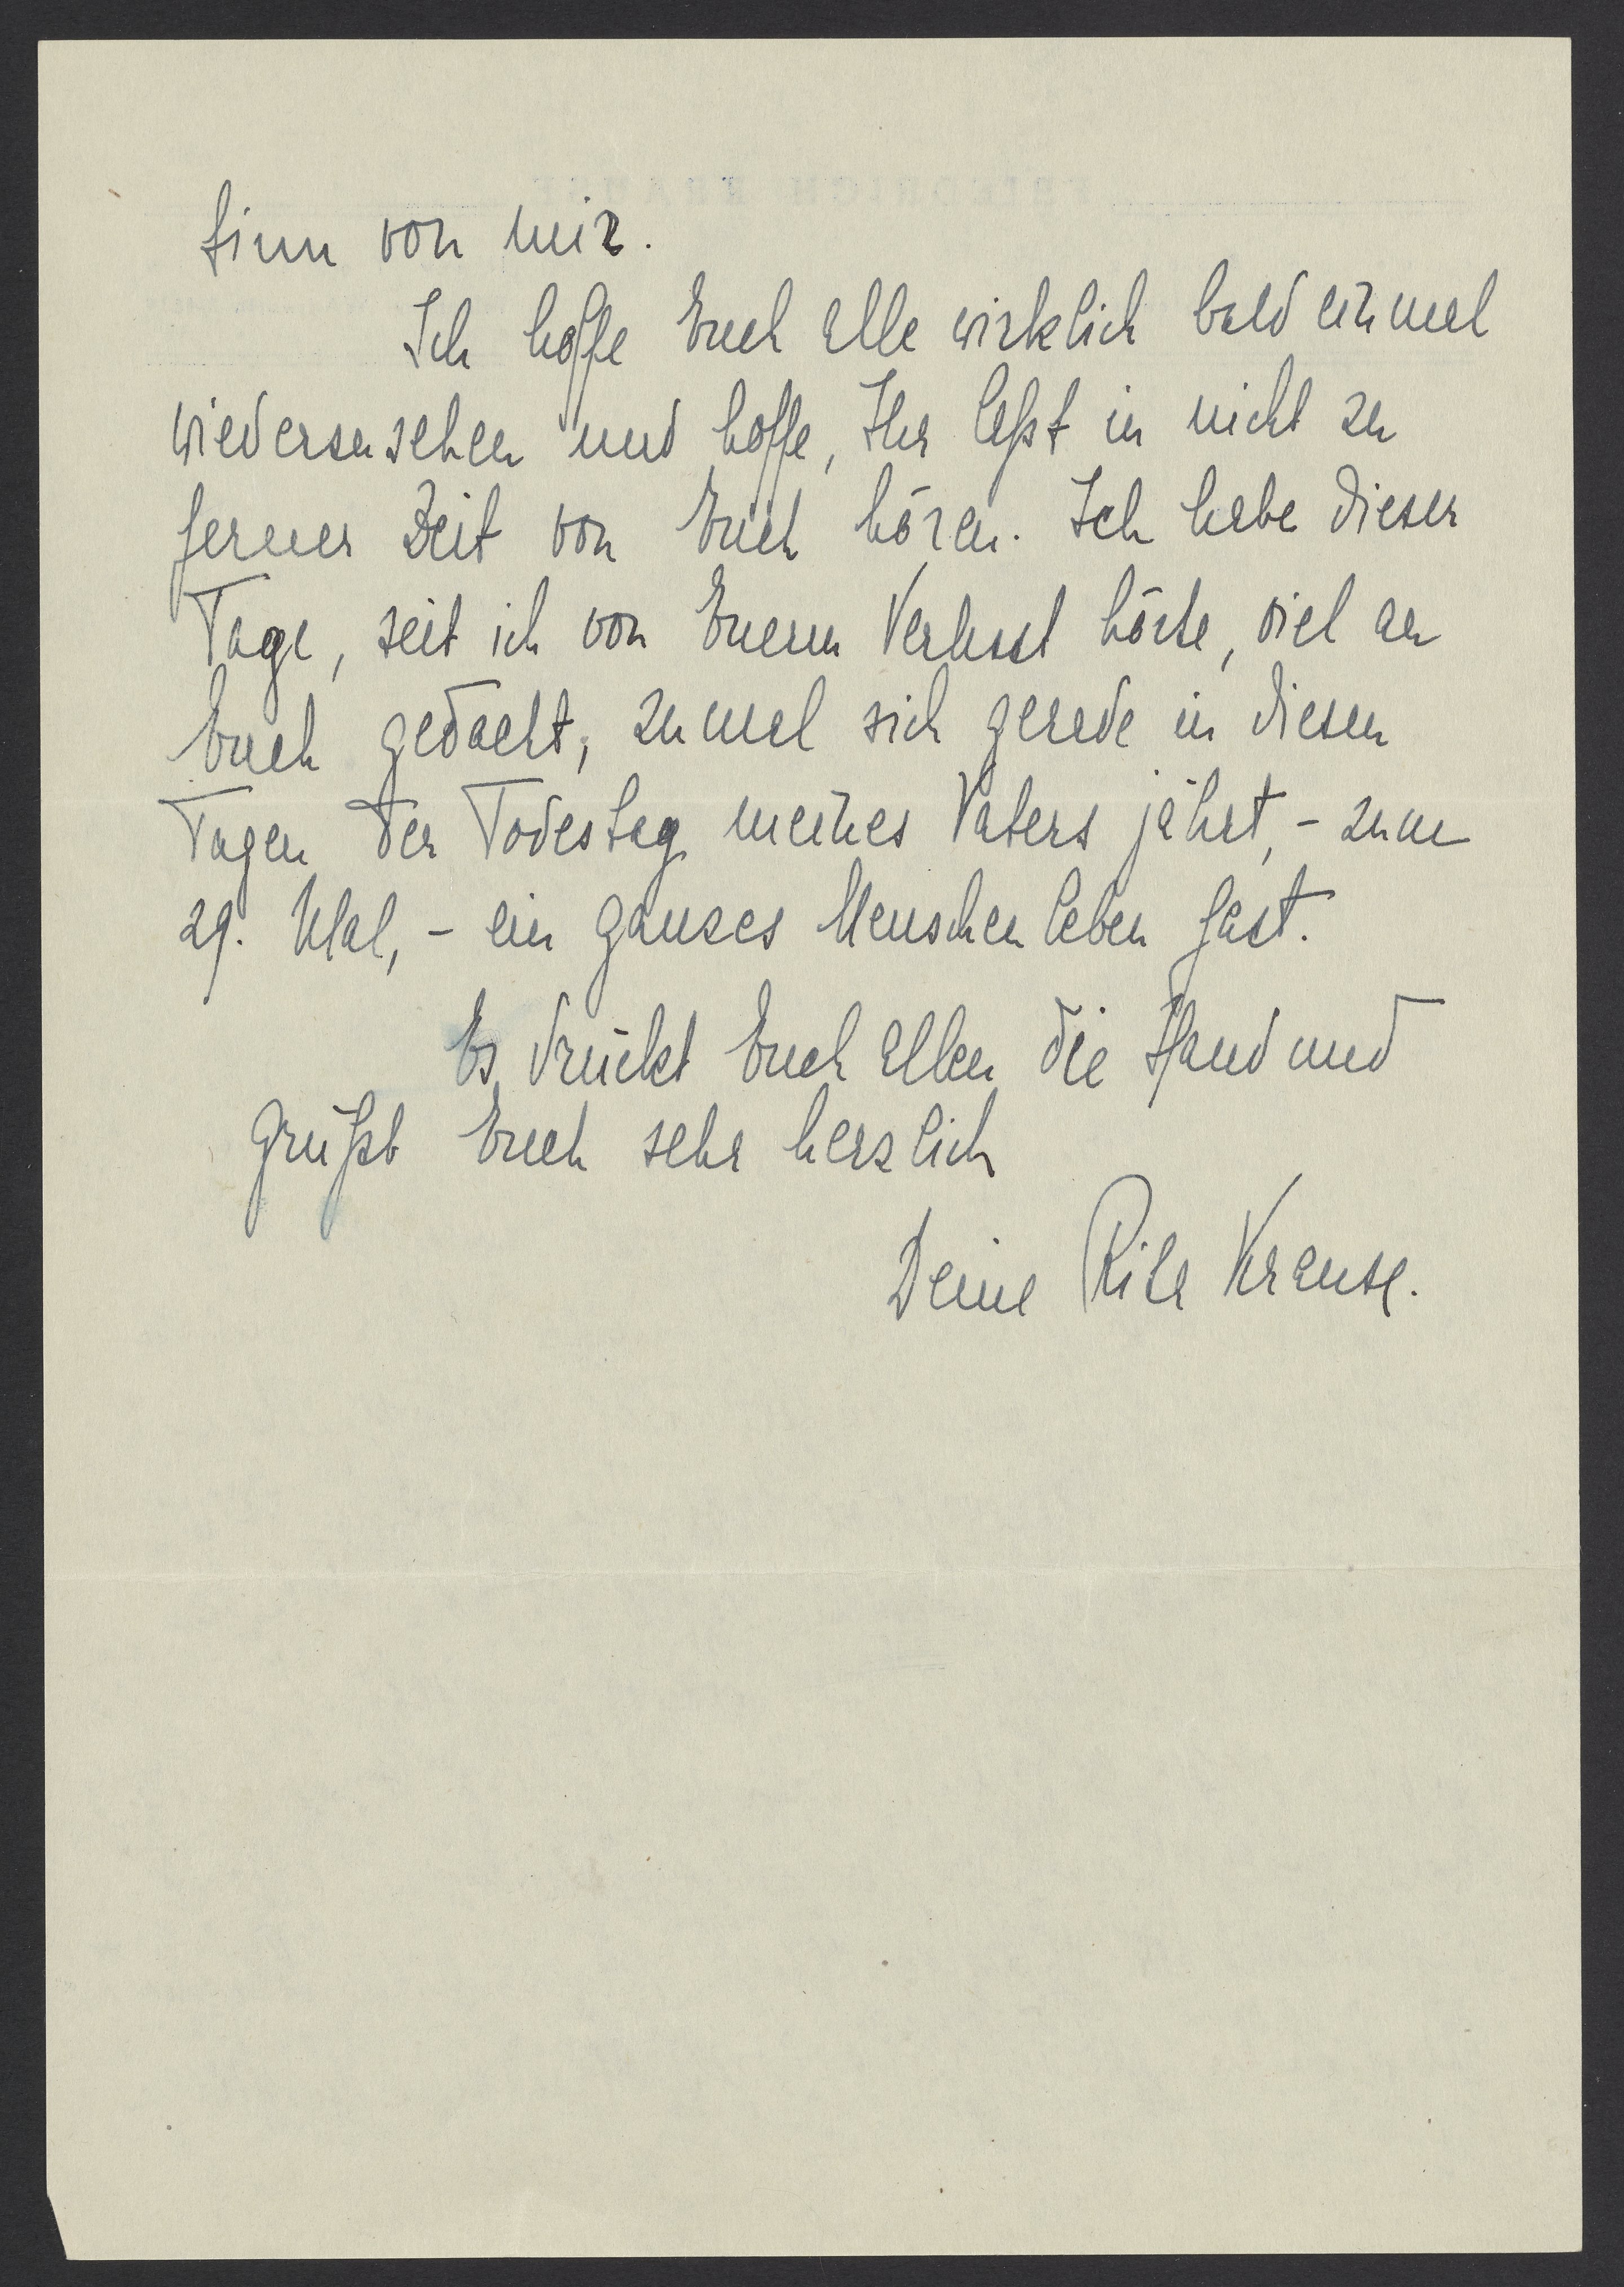 tinn von mir.
Ich hoffe Euch alle wirklich bald einmal
wiederzusehen und hoffe, Ihr laßt in nicht zu
ferner Zeit von Euch hören. Ich habe dieser
Tage, seit ich von Euerm Verlust hörte, viel an
Euch gedacht, zumal sich gerade in diesen
Tagen der Todestag meines Vaters jährt, - zum
29. Mal, - ein ganzes Menschenleben fast.
Es drückt Euch allen die Hand und
grüßt Euch sehr herzlich
Deine Rita Krause.